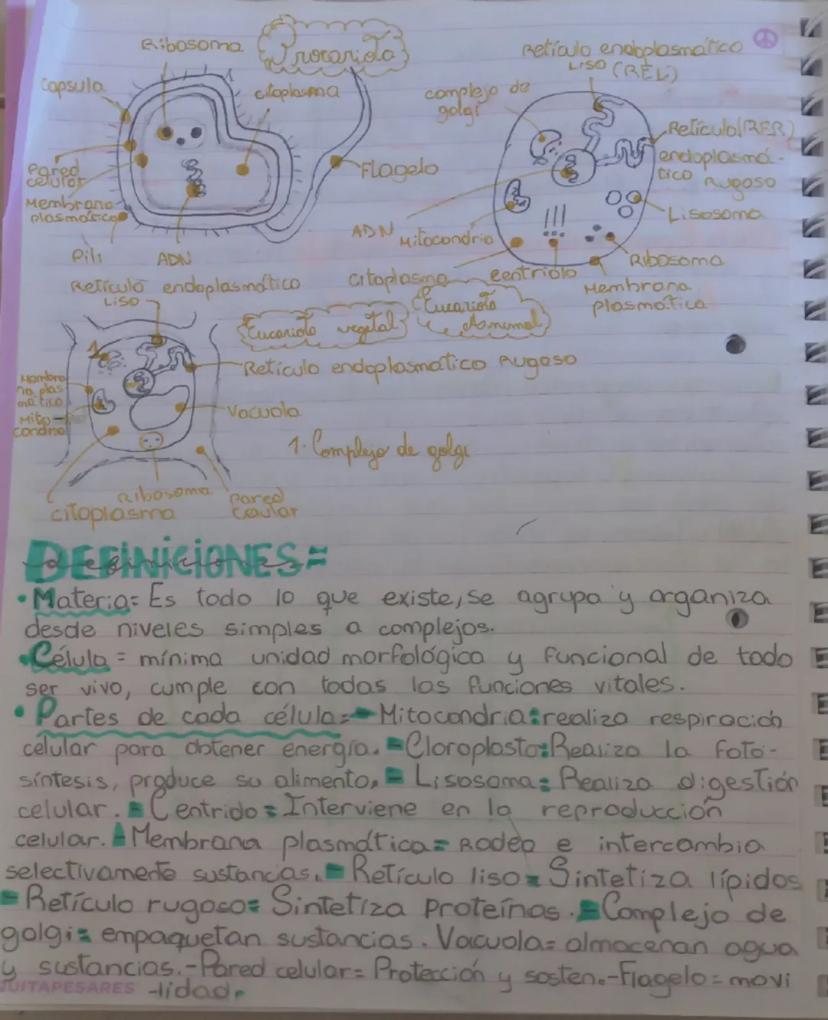 Ribosoma
Procariota
Capsula
citoplasma
Pared
celular
Membrana
plasmática
Pili
ADN
Flagelo
Retículo endoplasmático
Liso (REL)
complejo de
golgi
Retículo (RER)
endoplasmá-
tico Rugoso
Lisosoma
ADN
Mitocondria
citoplasma
centriolo
Ribosoma
Membrana
plasmática
Eucariota
Animal
Retículo endoplasmático
Liso
Eucariota vegetal
Retículo endoplasmatico Rugoso
Membra
na plas
mática
Mito-
condria
Vacuola
1. Complejo de golgi
1
Ribosoma
citoplasma
Pared
celular
DEFINICIONES=
• Materia= Es todo lo que existe, se agrupa y organiza
desde niveles simples a complejos.
• Célula = mínima unidad morfológica y funcional de todo
ser vivo, cumple con todas las funciones vitales.
• Partes de cada célula= - Mitocondria: realiza respiración
celular para obtener energía. - Cloroplasto: Realiza la foto-
síntesis, produce su alimento. - Lisosoma= Realiza digestión
celular. - Centrido= Interviene en la reproducción
celular. - Membrana plasmática= Rodea e intercambia
selectivamente sustancias. - Retículo liso= Sintetiza lípidos
- Retículo rugoso= Sintetiza Proteínas. - Complejo de
golgi= empaquetan sustancias. Vacuola= almacenan agua
y sustancias.-Pared celular= Protección y sosten.-Flagelo= movi
-lidad.
JUITAPESARES